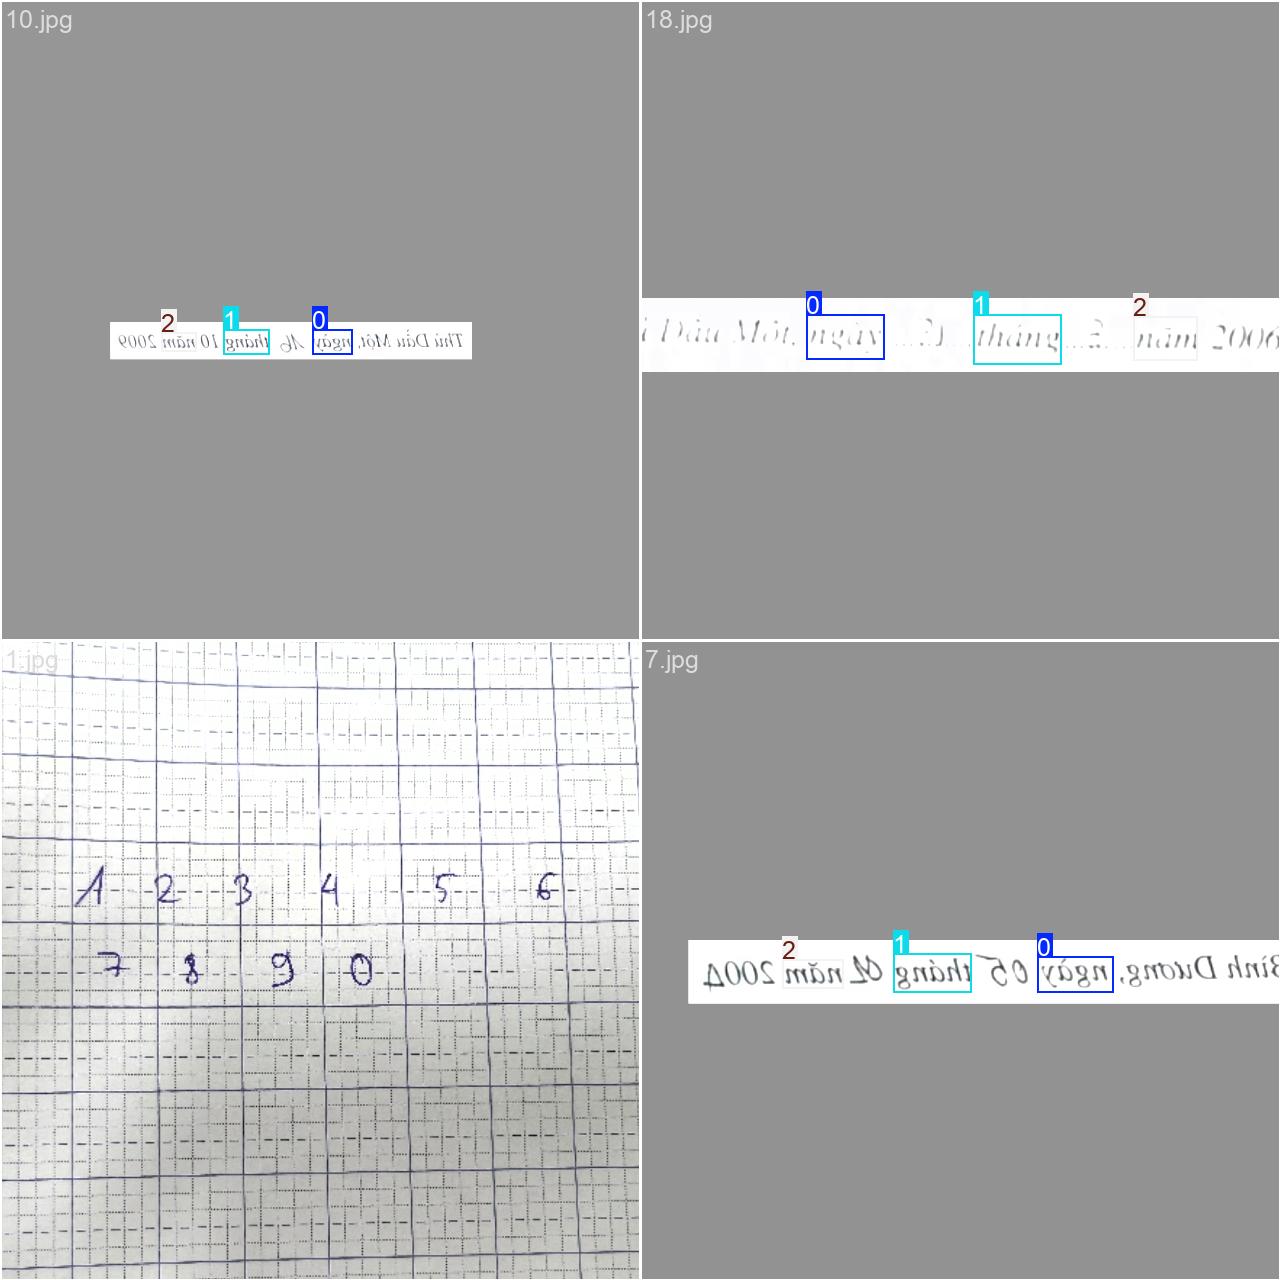 10.jpg
Thủ Dầu Một, ngày 16 tháng 10 năm 2009
0
1
2
18.jpg
Dầu Một, ngày tháng năm 2006
0
1
2
1.jpg
1 2 3 4 5 6
7 8 9 0
7.jpg
Bình Dương, ngày 05 tháng 01 năm 2004
0
1
2